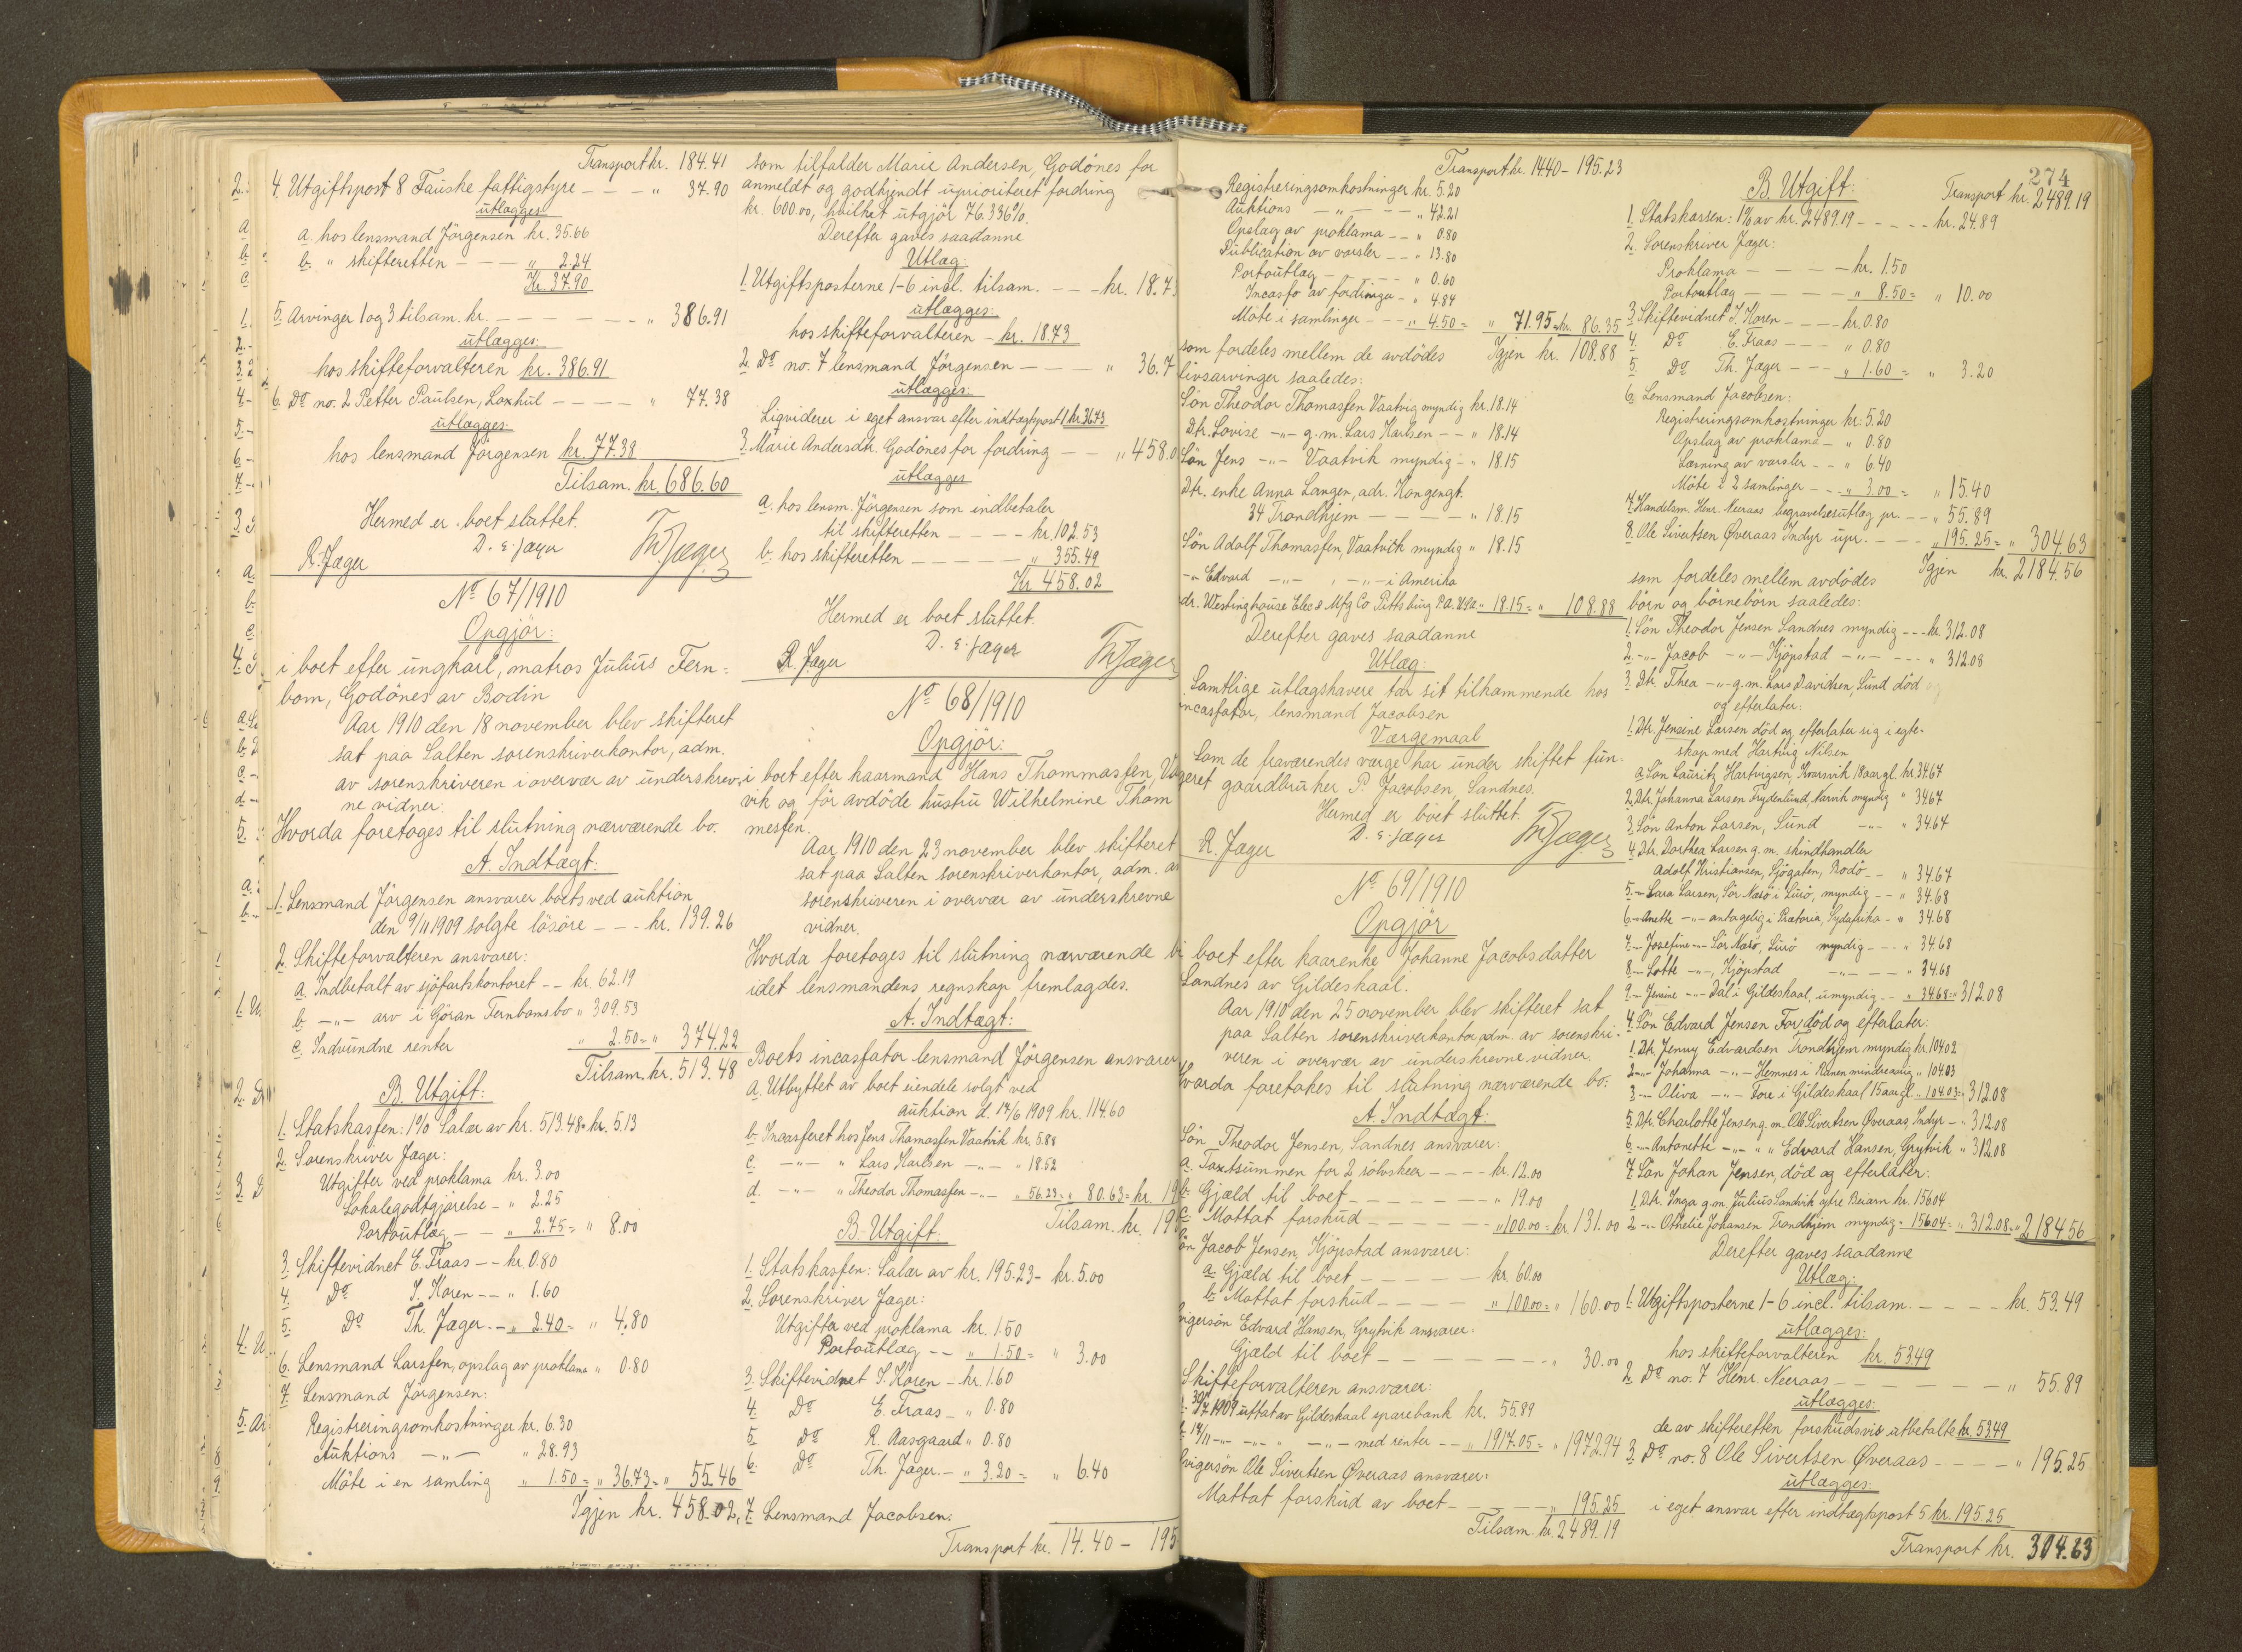 Transport kr. 184.41
4. Utgiftspost 8 Fauske fattigstyre - - - " 37.90
utlægges
a. hos lensmand Jörgensen kr. 35.66
b. " skifteretten - - - " 2.24
Kr. 37.90
5. Arvinger 1 og 3 tilsam. kr. - - - - - " 386.91
utlægges:
hos skifteforvalteren kr. 386.91
6. Do no. 2 Petter Paulsen, Loxhul - - - - " 77.38
utlægges:
hos lensmand Jörgensen kr. 77.38
Tilsam. kr. 686.60
Hermed er boet sluttet.
D. s. Jæger
R. Jæger Th. Jæger
No 67/1910
Opgjör:
i boet efter ungkarl, matros Julius Fern-
bom, Godönes av Bodin
Aar 1910 den 18 november blev skifteret
sat paa Salten sorenskriverkontor, adm.
av sorenskriveren i overvær av underskrev-
ne vidner:
Hvorda foretoges til slutning nærværende bo.
A. Indtægt:
1. Lensmand Jörgensen ansvarer boets ved auktion
den 9/11 1909 solgte lösöre - - - kr. 139.26
2. Skifteforvalteren ansvarer:
a. Indbetalt av sjöfartskontoret - - kr. 62.19
b. -"- arv i Göran Fernboms bo " 309.53
c. Indvundne renter " 2.50 = " 374.22
Tilsam. kr. 513.48
B. Utgift:
1. Statskassen: 1% Salær av kr. 513.48 = kr. 5.13
2. Sorenskriver Jæger:
Utgifter ved proklama kr. 3.00
Lokalegodtgjörelse - " 2.25
Portoutlæg - - " 2.75 = " 8.00
3. Skiftevidnet E. Fraas - - kr. 0.80
4. Do I. Koren - - " 1.60
5. Do Th. Jæger - " 2.40 = " 4.80
6. Lensmand Larssen, opslag av proklama " 0.80
7. Lensmand Jörgensen:
Registreringsomkostninger kr. 6.30
Auktions -"- " 28.93
Möte i en samling " 1.50 = " 36.73 = " 55.46
Igjen kr. 458.02,
som tilfalder Marie Andersen, Godönes for
anmeldt og godkjendt uprioriteret fordring
kr. 600.00, hvilket utgjör 76.336%.
Derefter gaves saadanne
Utlæg:
1. Utgiftsposterne 1-6 incl. tilsam. - - - kr. 18.73
utlægges:
hos skifteforvalteren - kr. 18.73
2. Do no. 7 lensmand Jörgensen - - - " 36.7
utlægges:
Liqviderer i eget ansvar efter indtægtspost 1 kr. 36.73
3. Marie Andersdtr. Godönes for fordring - - " 458.0
utlægges
a. hos lensm. Jörgensen som indbetaler
til skifteretten - - - - kr. 102.53
b. hos skifteretten - - - - - " 355.49
Kr. 458.02
Hermed er boet sluttet.
D. s. Jæger
R. Jæger Th. Jæger
No 68/1910
Opgjör:
i boet efter kaarmand Hans Thommassen, Va
vik og för avdöde hustru Wilhelmine Thom
messen.
Aar 1910 den 23 november blev skifteret
sat paa Salten sorenskriverkontor, adm. av
sorenskriveren i overvær av underskrevne
vidner.
Hvorda foretoges til slutning nærværende b
idet lensmandens regnskap fremlagdes.
A. Indtægt:
Boets incassator lensmand Jörgensen ansvarer
a. Utbyttet av boet eiendele solgt ved
auktion d. 14/6 1909 kr. 114.60
b. Incasseret hos Jens Thomassen Vaatvik kr. 5.88
c. -"- " Lars Karlsen -"- " 18.52
d. -"- " Theodor Thomassen -"- " 56.23 = " 80.63 = kr. 19
Tilsam. kr. 19
B. Utgift:
1. Statskassen: Salær av kr. 195.23 - kr. 5.00
2. Sorenskriver Jæger:
Utgifter ved proklama kr. 1.50
Portoutlæg - - " 1.50 = " 3.00
3. Skiftevidnet I. Koren - kr. 1.60
4. Do E. Fraas - " 0.80
5. Do R. Aasgaard " 0.80
6. Do Th. Jæger - " 3.20 = " 6.40
7. Lensmand Jacobsen:
Transport kr. 14.40 - 195
Transport kr. 1440 - 195.23
Registreringsomkostninger kr. 5.20
Auktions -"- - - " 42.21
Opslag av proklama - - " 0.80
Publication av varsler - - " 13.80
Portoutlæg - - - - " 0.60
Incasso av fordringer - " 4.84
Möte i samlinger - - " 4.50 = " 71.95 = kr. 86.35
Igjen kr. 108.88
som fordeles mellem de avdödes
livsarvinger saaledes:
Sön Theodor Thomassen Vaatvig myndig kr. 18.14
Dtr. Lovise -"- g.m. Lars Karlsen - - " 18.14
Sön Jens -"- Vaatvik myndig - " 18.15
Dtr. enke Anna Langen, adr. Kongengt.
34 Trondhjem - - - - " 18.15
Sön Adolf Thomassen, Vaatvik myndig " 18.15
-"- Edvard -"- , -"- i Amerika
adr. Westinghouse Elec & Mfg Co Pittsburg P.A. Usa. " 18.15 = " 108.88
Derefter gaves saadanne
Utlæg:
Samtlige utlægshavere tar sit tilkommende hos
incassator, lensmand Jacobsen
Værgemaal
Som de fraværendes værge har under skiftet fun-
geret gaardbruker P. Jacobsen, Sandnes.
Hermed er boet sluttet.
D. s. Jæger
R. Jæger Th. Jæger
No 69/1910
Opgjör
i boet efter kaarenke Johanne Jacobsdatter
Sandnes av Gildeskaal.
Aar 1910 den 25 november blev skifteret sat
paa Salten sorenskriverkontor, adm. av sorenskri-
veren i overvær av underskrevne vidner.
Hvorda foretakes til slutning nærværende bo:
A. Indtægt:
Sön Theodor Jensen, Sandnes ansvarer:
a. Taxtsummen for 2 sölvskeer - - - - kr. 12.00
b. Gjæld til boet - - - - - - - " 19.00
c. Mottat forskud - - - - - - " 100.00 = kr. 131.00
Sön Jacob Jensen, Kjöpstad ansvarer:
a. Gjæld til boet - - - - - kr. 60.00
b. Mottat forskud - - - - " 100.00 = " 160.00
Svigersön Edvard Hansen, Grytvik ansvarer:
Gjæld til boet - - - - - - - " 30.00
Skifteforvalteren ansvarer:
30/7 1909 uttat av Gildeskaal sparebank kr. 55.89
14/11 -"- -"- " -"- med renter - - " 1917.05 = " 1972.94
Svigersön Ole Sivertsen Øveraas ansvarer:
Mottat forskud av boet - - - - - " 195.25
Tilsam. kr. 2489.19
274
B. Utgift:
Transport kr. 2489.19
1. Statskassen: 1% av kr. 2489.19 - - - - - kr. 24.89
2. Sorenskriver Jæger:
Proklama - - - - kr. 1.50
Portoutlæg - - - - " 8.50 = " 10.00
3. Skiftevidnet I. Koren - - - - kr. 0.80
4. Do E. Fraas - - - " 0.80
5. Do Th. Jæger - - - " 1.60 = " 3.20
6. Lensmand Jacobsen:
Registreringsomkostninger kr. 5.20
Opslag av proklama - " 0.80
Læsning av varsler - - " 6.40
Möte i 2 samlinger - - - " 3.00 = " 15.40
7. Handelsm. Henr. Neeraas begravelsesutlæg pr. - - " 55.89
8. Ole Sivertsen Øveraas Indyr upr. - - - " 195.25 = " 304.63
Igjen kr. 2184.56
som fordeles mellem avdödes
börn og börnebörn saaledes:
1. Sön Theodor Jensen Sandnes myndig - - - kr. 312.08
2. -"- Jacob -"- Kjöpstad -"- - - - " 312.08
3. Dtr. Thea -"- g.m. Lars Davidsen, Sund död
og efterlater:
1. Dtr. Jensine Larsen död og efterlater sig i egte-
skap med Hartvig Nilsen
a. Sön Lauritz Hartvigsen, Kvarsvik 18 aar gl. kr. 34.67
2. Dtr. Johanna Larsen Frydenlund, Narvik myndig " 34.67
3. Sön Anton Larsen, Sund -"- " 34.67
4. Dtr. Dorthea Larsen g.m. skindhandler
Adolf Kristiansen, Sjögaten, Bodö - - " 34.67
5. -"- Sara Larsen, Sör Næsö i Lurö, myndig - - " 34.68
6. -"- Anette -"- antagelig i Prætoria, Sydafrika - " 34.68
7. -"- Josefine -"- Sör Næsö, Lurö myndig - - - " 34.68
8. -"- Lotte -"-, Kjöpstad -"- - - - " 34.68
9. -"- Jensine -"- Dal i Gildeskaal, umyndig - - " 34.68 = " 312.08
4. Sön Edvard Jensen For död og efterlater:
1. Dtr. Jenny Edvardsen Trondhjem myndig kr. 104.02
2. -"- Johanna -"- Hemnes i Ranen mindreaarig " 104.03
3. -"- Oliva -"- Fore i Gildeskaal 15 aar gl. " 104.03 = " 312.08
5. Dtr. Charlotte Jensen g.m. Ole Sivertsen Øveraas, Indyr - " 312.08
6. -"- Antonette -"- " " Edvard Hansen, Grytvik " 312.08
7. Sön Johan Jensen, död og efterlater:
1. Dtr. Inga g.m. Julius Sandvik ytre Beiarn kr. 156.04
2. -"- Othelie Johansen Trondhjem myndig " 156.04 = " 312.08 = " 2184.56
Derefter gaves saadanne
Utlæg:
1. Utgiftsposterne 1-6 incl. tilsam. - - - - kr. 53.49
utlægges:
hos skifteforvalteren kr. 53.49
2. Do no. 7 Henr. Neeraas - - - - - - - " 55.89
utlægges:
de av skifteretten forskudsvis utbetalte kr. 53.49
3. Do no. 8 Ole Sivertsen Øveraas - - - - " 195.25
utlægges:
i eget ansvar efter indtægtspost 5 kr. 195.25
Transport kr. 304.63